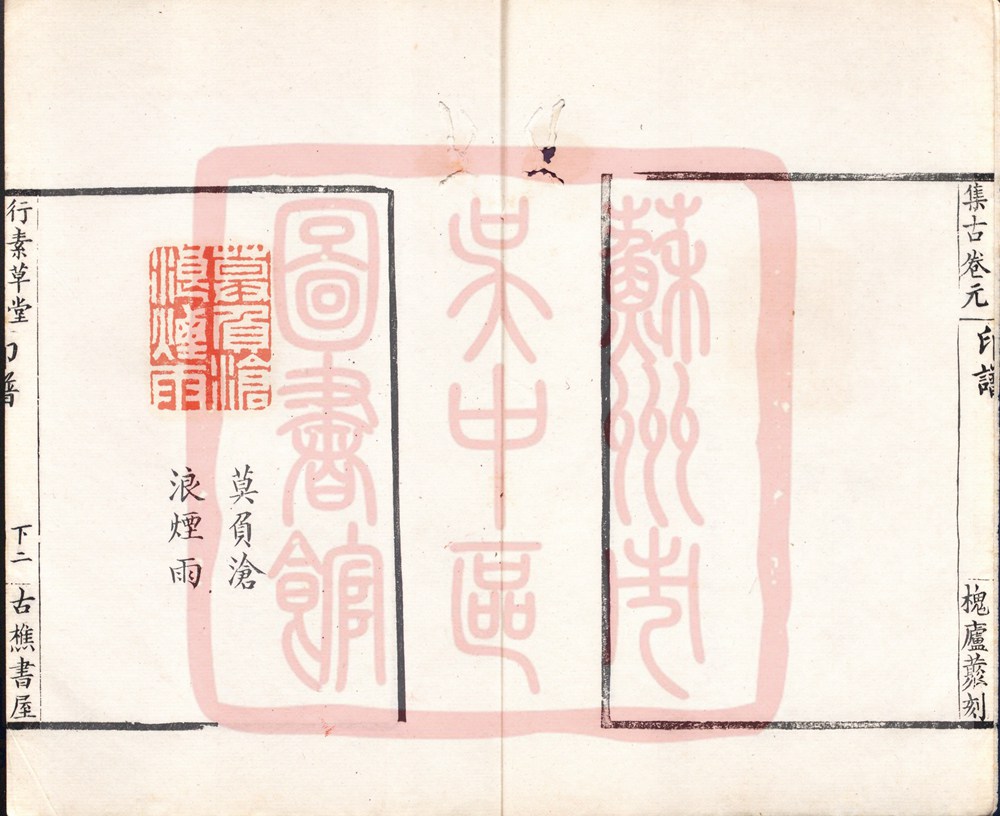 集古卷元
印譜
槐廬叢刻
蘇州市
吳中區
圖書館
莫負滄
浪煙雨
莫負滄
浪煙雨
行素草堂
印譜
下二
古樵書屋